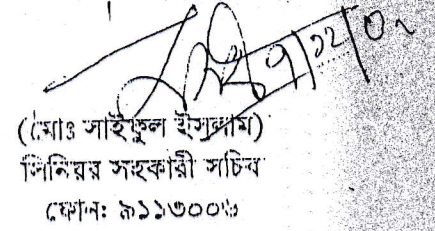 ৭/১২/০২
(মোঃ সাইফুল ইসলাম)
সিনিয়র সহকারী সচিব
ফোনঃ ৯১১৩০০৬